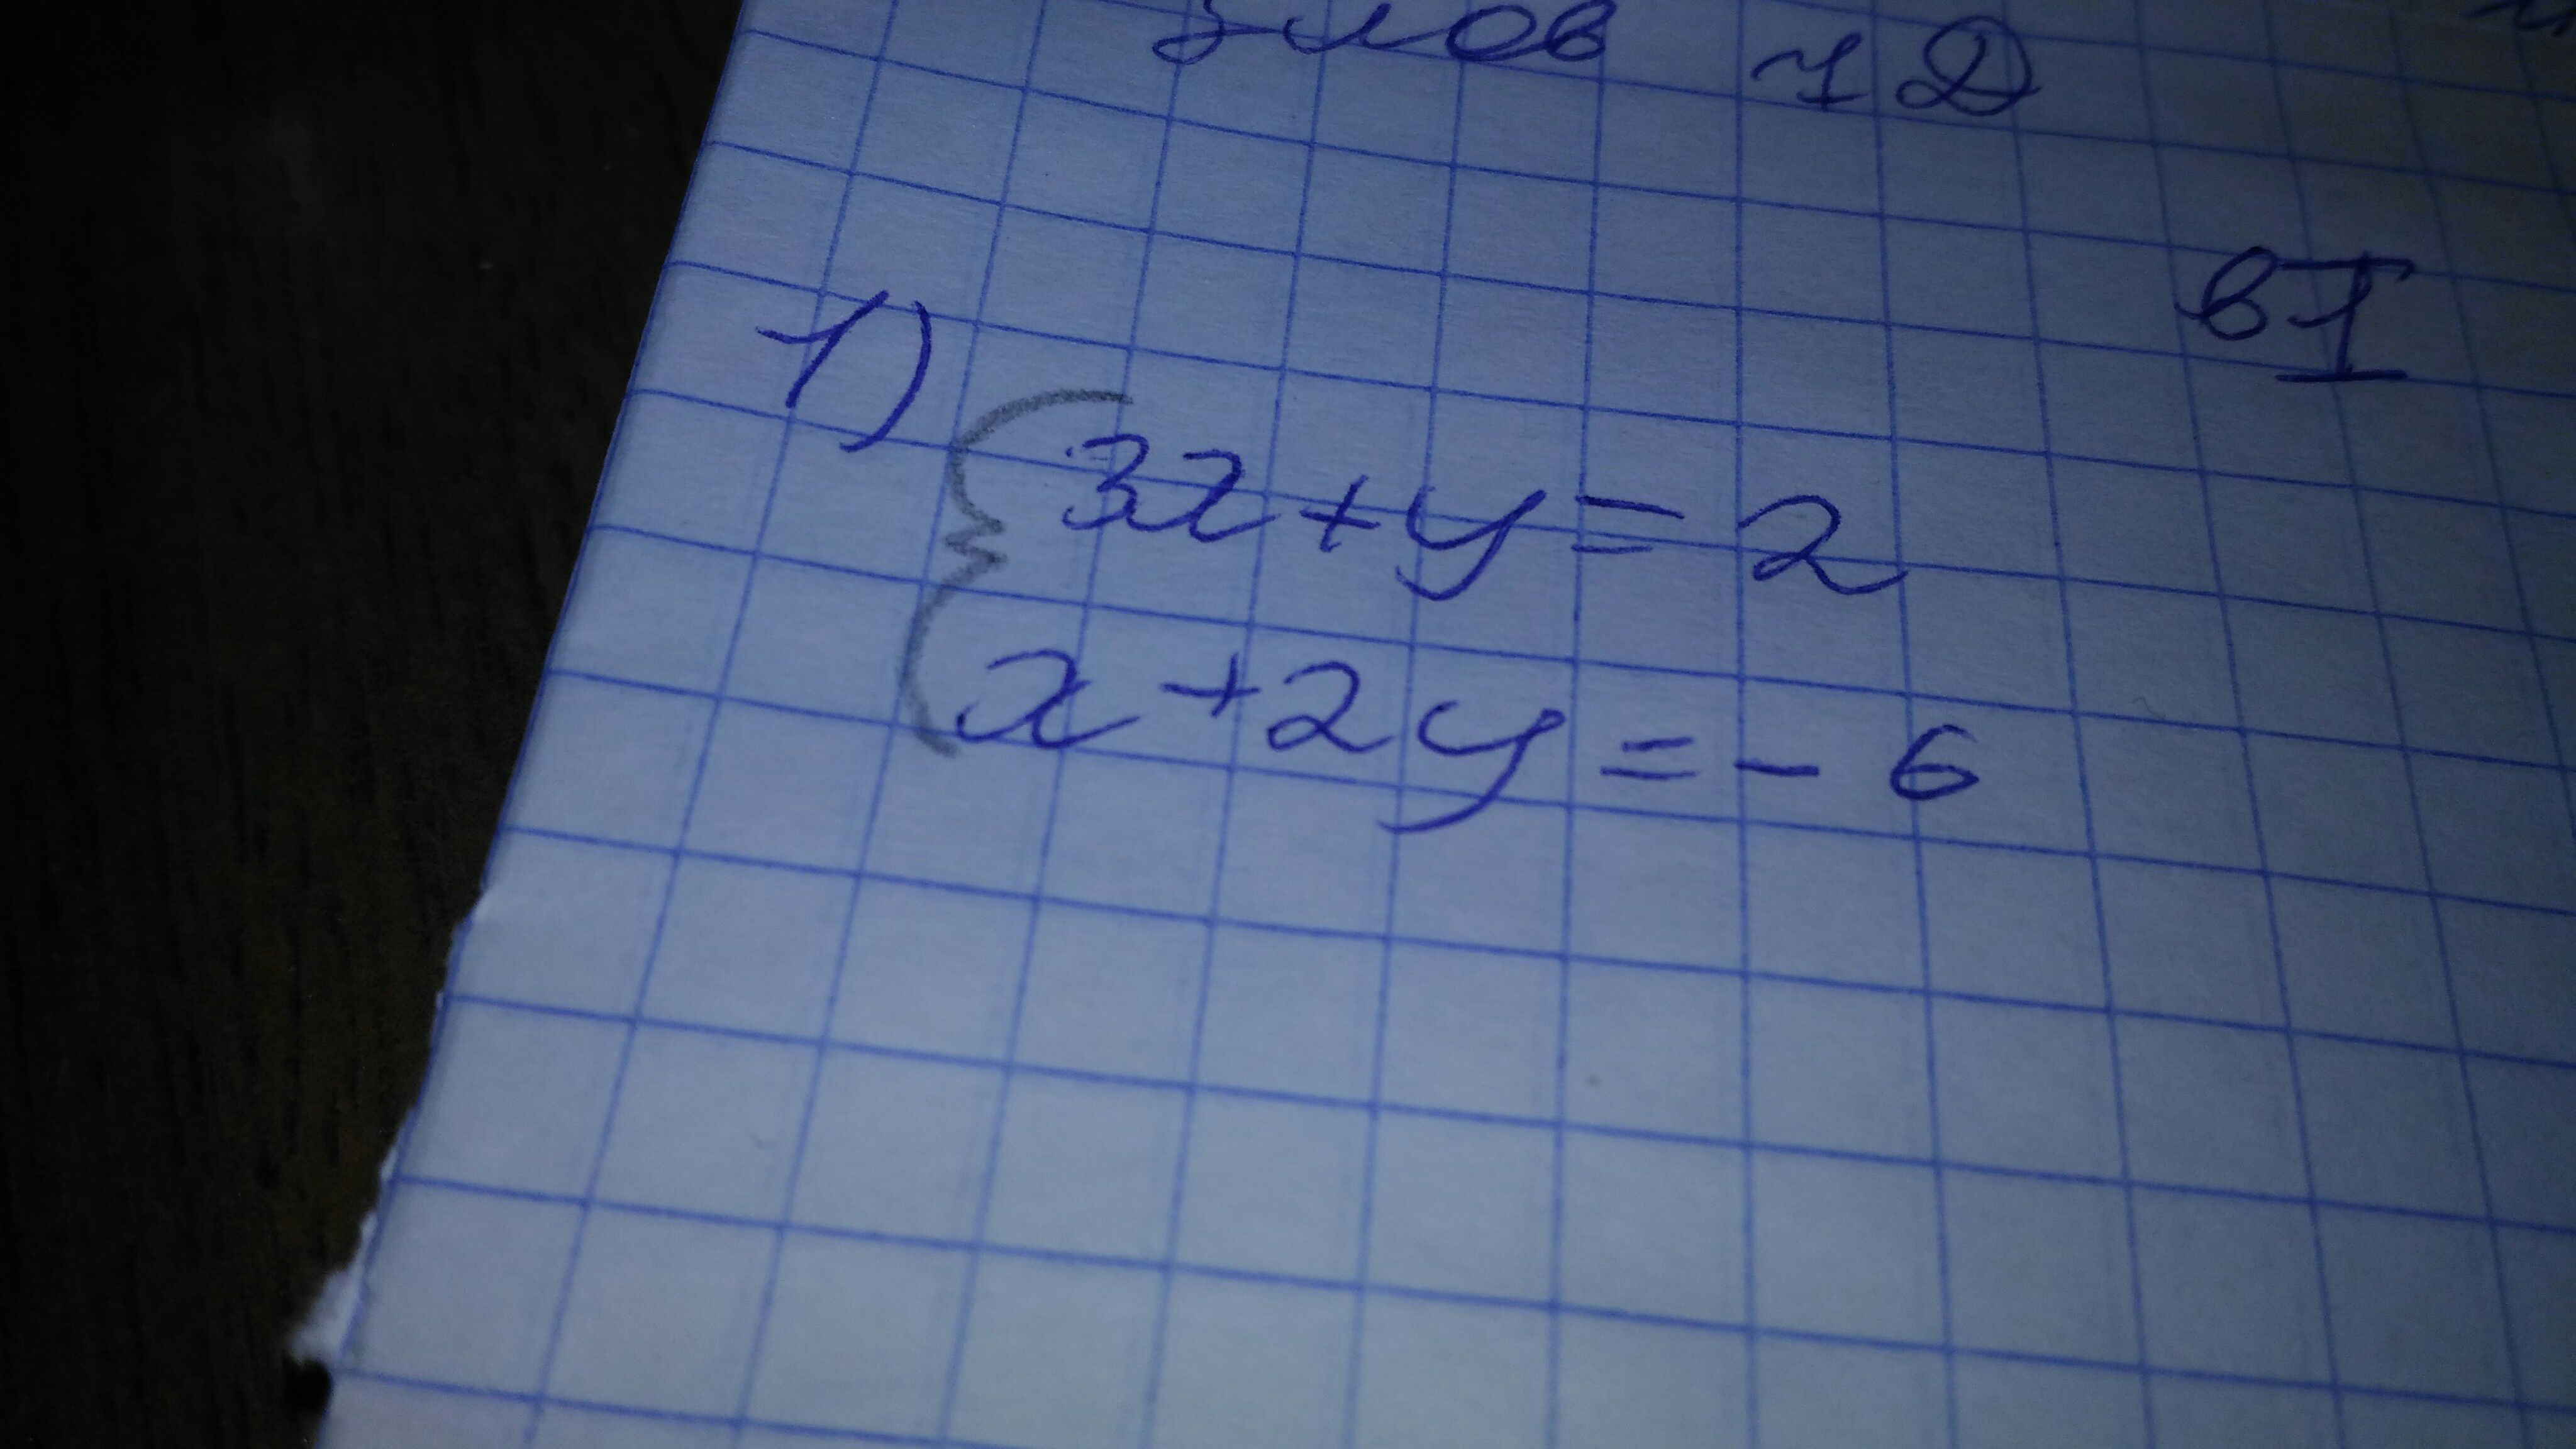 1)
вI
3x+y=2
x+2y=-6